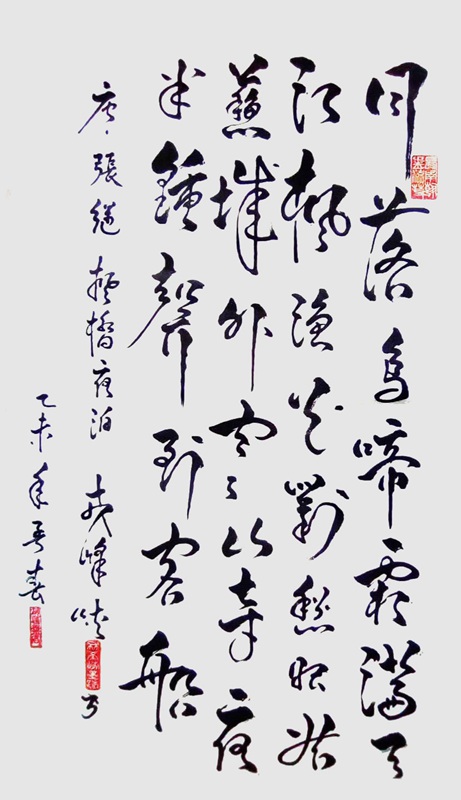 月落烏啼霜滿天
江楓漁火對愁眠姑
蘇城外寒山寺夜
半鐘聲到客船
唐張繼楓橋夜泊 峰
乙未年春